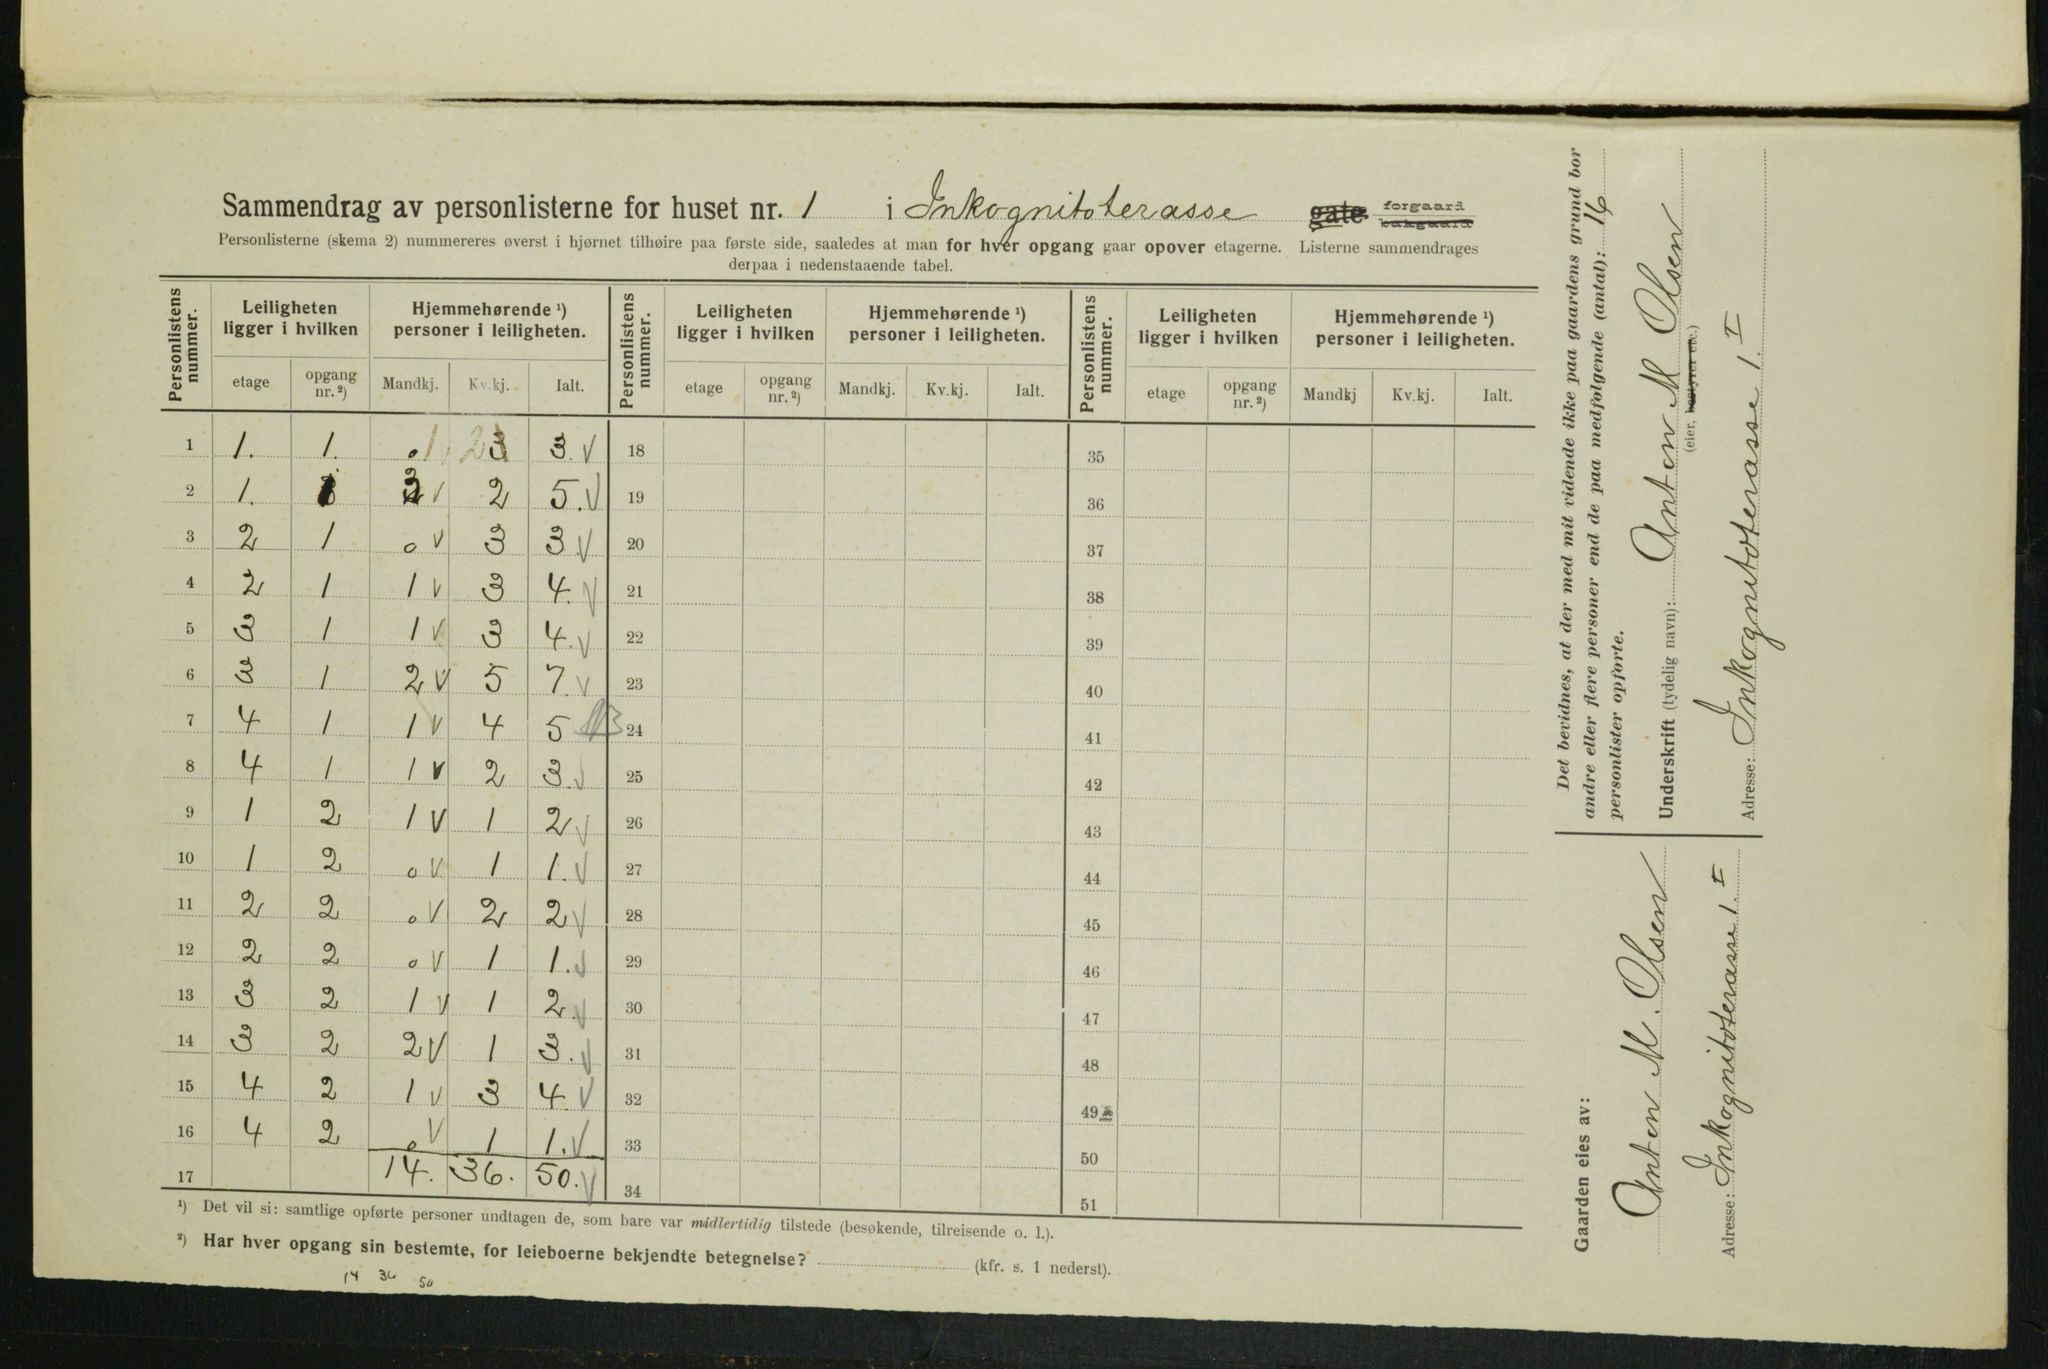 Sammendrag av personlisterne for huset nr. 1 i Inkognitoterasse gate. forgaard bakgaard
Personlisterne (skema 2) nummereres øverst i hjørnet tilhøire paa første side, saaledes at man for hver opgang gaar opover etagerne. Listerne sammendrages
derpaa i nedenstaaende tabel.
Personlistens nummer. Leiligheten ligger i hvilken Hjemmehørende ¹) personer i leiligheten. Personlistens nummer. Leiligheten ligger i hvilken Hjemmehørende ¹) personer i leiligheten. Personlistens nummer. Leiligheten ligger i hvilken Hjemmehørende ¹) personer i leiligheten.
etage opgang nr. ²) Mandkj. Kv.kj. Ialt. etage opgang nr. ²) Mandkj. Kv.kj. Ialt. etage opgang nr. ²) Mandkj Kv.kj. Ialt.
1 1. 1. 0 1 v 2 3 3. v 18 35
2 1. 1 3 v 2 5. v 19 36
3 2 1 0 v 3 3 v 20 37
4 2 1 1 v 3 4. v 21 38
5 3 1 1 v 3 4. v 22 39
6 3 1 2 v 5 7. v 23 40
7 4 1 1 v 4 5 24 41
8 4 1 1 v 2 3. v 25 42
9 1 2 1 v 1 2 v 26 43
10 1 2 0 v 1 1. v 27 44
11 2 2 0 v 2 2 v 28 45
12 2 2 0 v 1 1. v 29 46
13 3 2 1 v 1 2. v 30 47
14 3 2 2 v 1 3. v 31 48
15 4 2 1 v 3 4. v 32 49
16 4 2 0 v 1 1. v 33 50
17 14. 36. 50. v 34 51
¹) Det vil si: samtlige opførte personer undtagen de, som bare var midlertidig tilstede (besøkende, tilreisende o. l.).
²) Har hver opgang sin bestemte, for leieboerne bekjendte betegnelse? (kfr. s. 1 nederst).
14 36 50
Det bevidnes, at der med mit vidende ikke paa gaardens grund bor
andre eller flere personer end de paa medfølgende (antal): 16
personlister opførte.
Underskrift (tydelig navn): Anton M Olsen
(eier, bestyrer etc.)
Adresse: Inkognitoterasse 1. I
Gaarden eies av:
Anton M. Olsen
Adresse: Inkognitoterasse 1. I